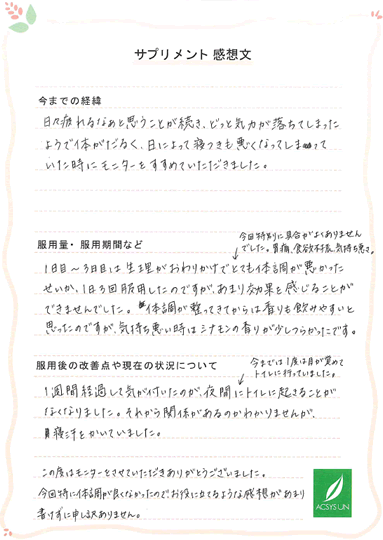 サプリメント 感想文
今までの経緯
日々疲れるなあと思うことが続き、どっと気力が落ちてしまった
ようで体がだるく、日によって寝つきも悪くなってしまって
いた時にモニターをすすめていただきました。
服用量・服用期間など
今回特別に具合がよくありません
でした。胃痛、食欲不振、気持ち悪さ。
1日目~3日目は生理がおわりかけでとても体調が悪かった
せいか、1日3回服用したのですが、あまり効果を感じることが
できませんでした。体調が整ってきてからは香りも飲みやすいと
思ったのですが、気持ち悪い時はシナモンの香りが少しつらかったです。
服用後の改善点や現在の状況について
今までは1度は目が覚めて
トイレに行っていました。
1週間経過して気が付いたのが、夜間にトイレに起きることが
なくなりました。それから関係があるのかわかりませんが、
寝汗をかいていました。
この度はモニターをさせていただきありがとうございました。
今回特に体調が良くなかったのでお役に立てるような感想があまり
書けずに申し訳ありません。
ACSYS UN